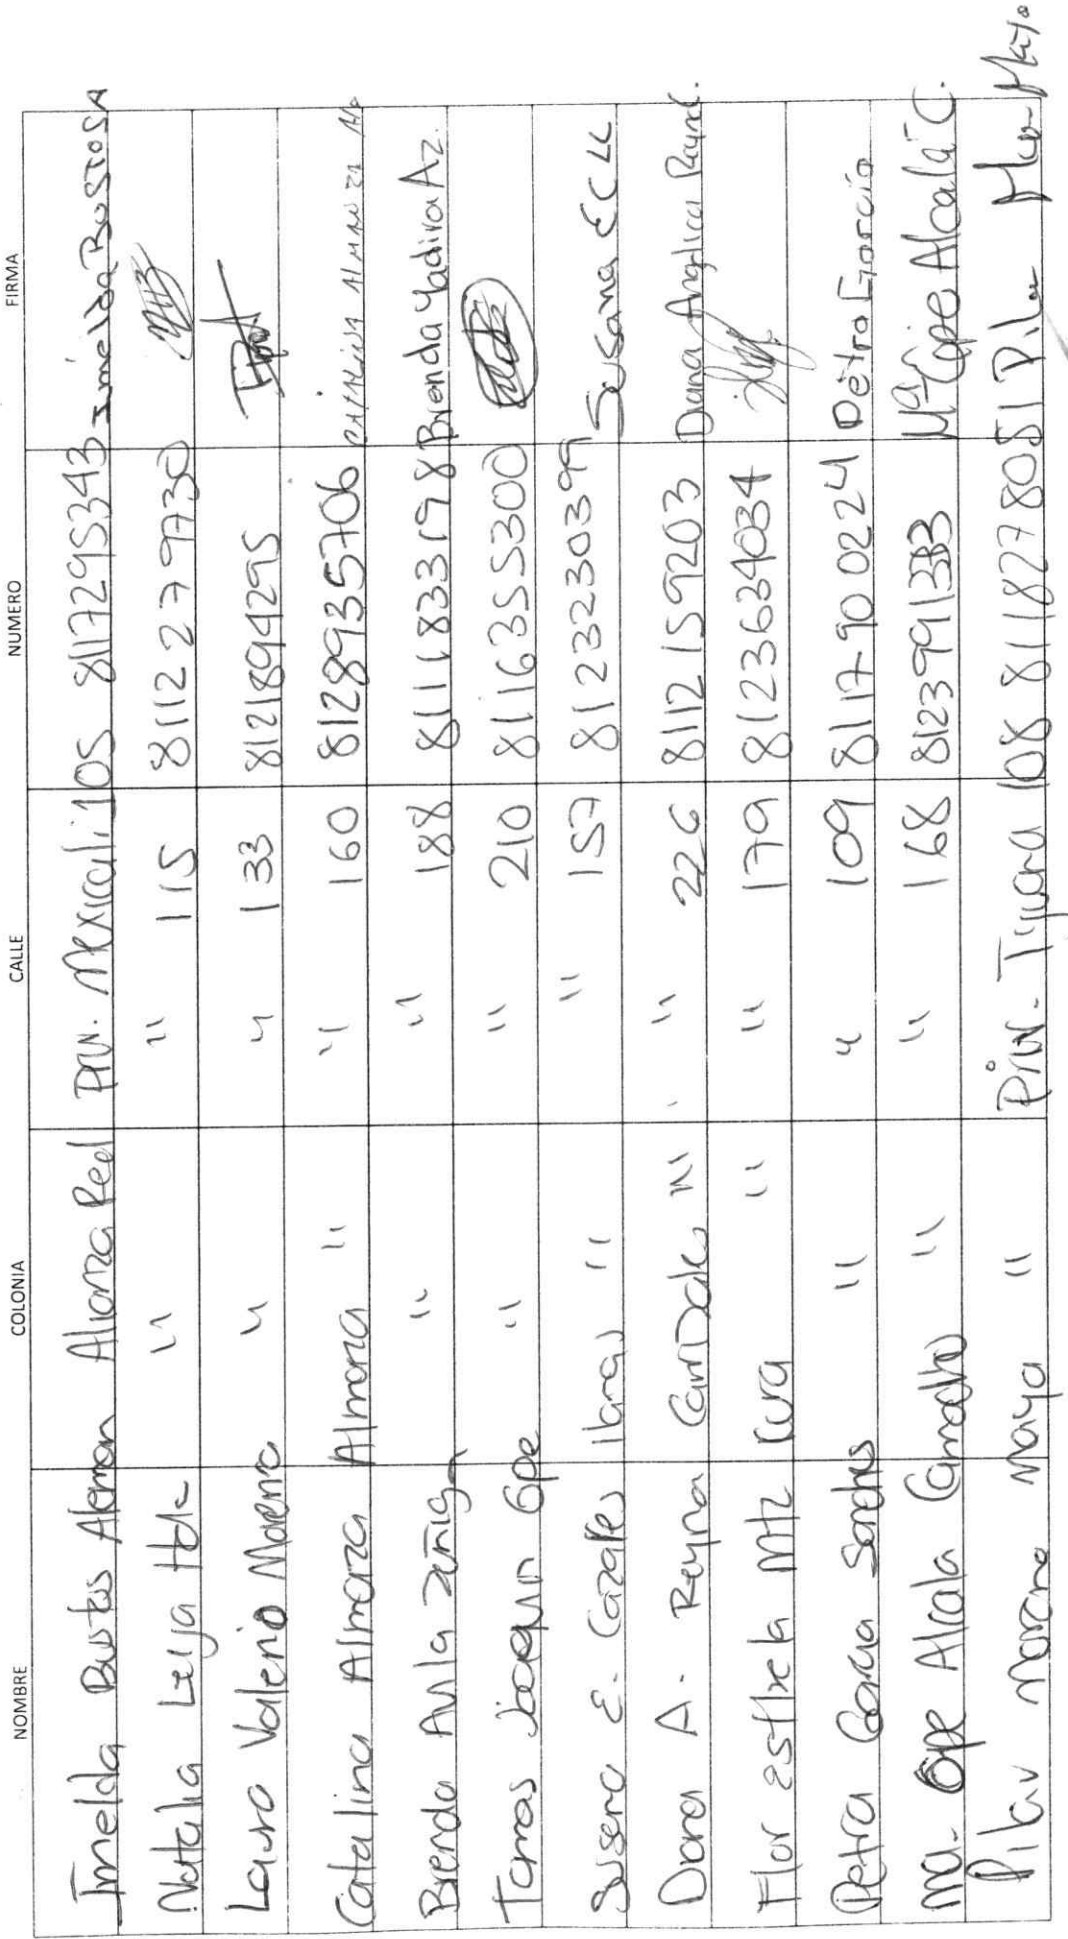 NOMBRE COLONIA CALLE NUMERO FIRMA
Imelda Bustos Aleman Alianza Real Priv. Mexicali 105 8117295343 Imelda Bustos A
Natalia Leija Hdz " " 115 8112279730
Laura Valerio Moreno " " 133 8121894295
Catalina Almanza Almanza " " 160 8128935706
Brenda Avila Zuñiga " " 188 8111833198 Brenda Yadira Az.
Tomas Joaquin Gpe " " 210 8116355300
Susana E. Cazares Ibarra " " 157 8123230399 Susana E C
Diana A. Reyna Carrizales " " 226 8112159203 Diana Anglica Reyna C.
Flor Esthela Mtz Cura " " 179 8123634034
Petra Garcia Sanchez " " 109 8117900224 Petra Garcia
Ma. Gpe Alcala Camacho " " 168 8123991333 Ma Gpe Alcala C.
Pilar Morano Maya " Priv. Tijuana 108 8118278051 Pilar Maya